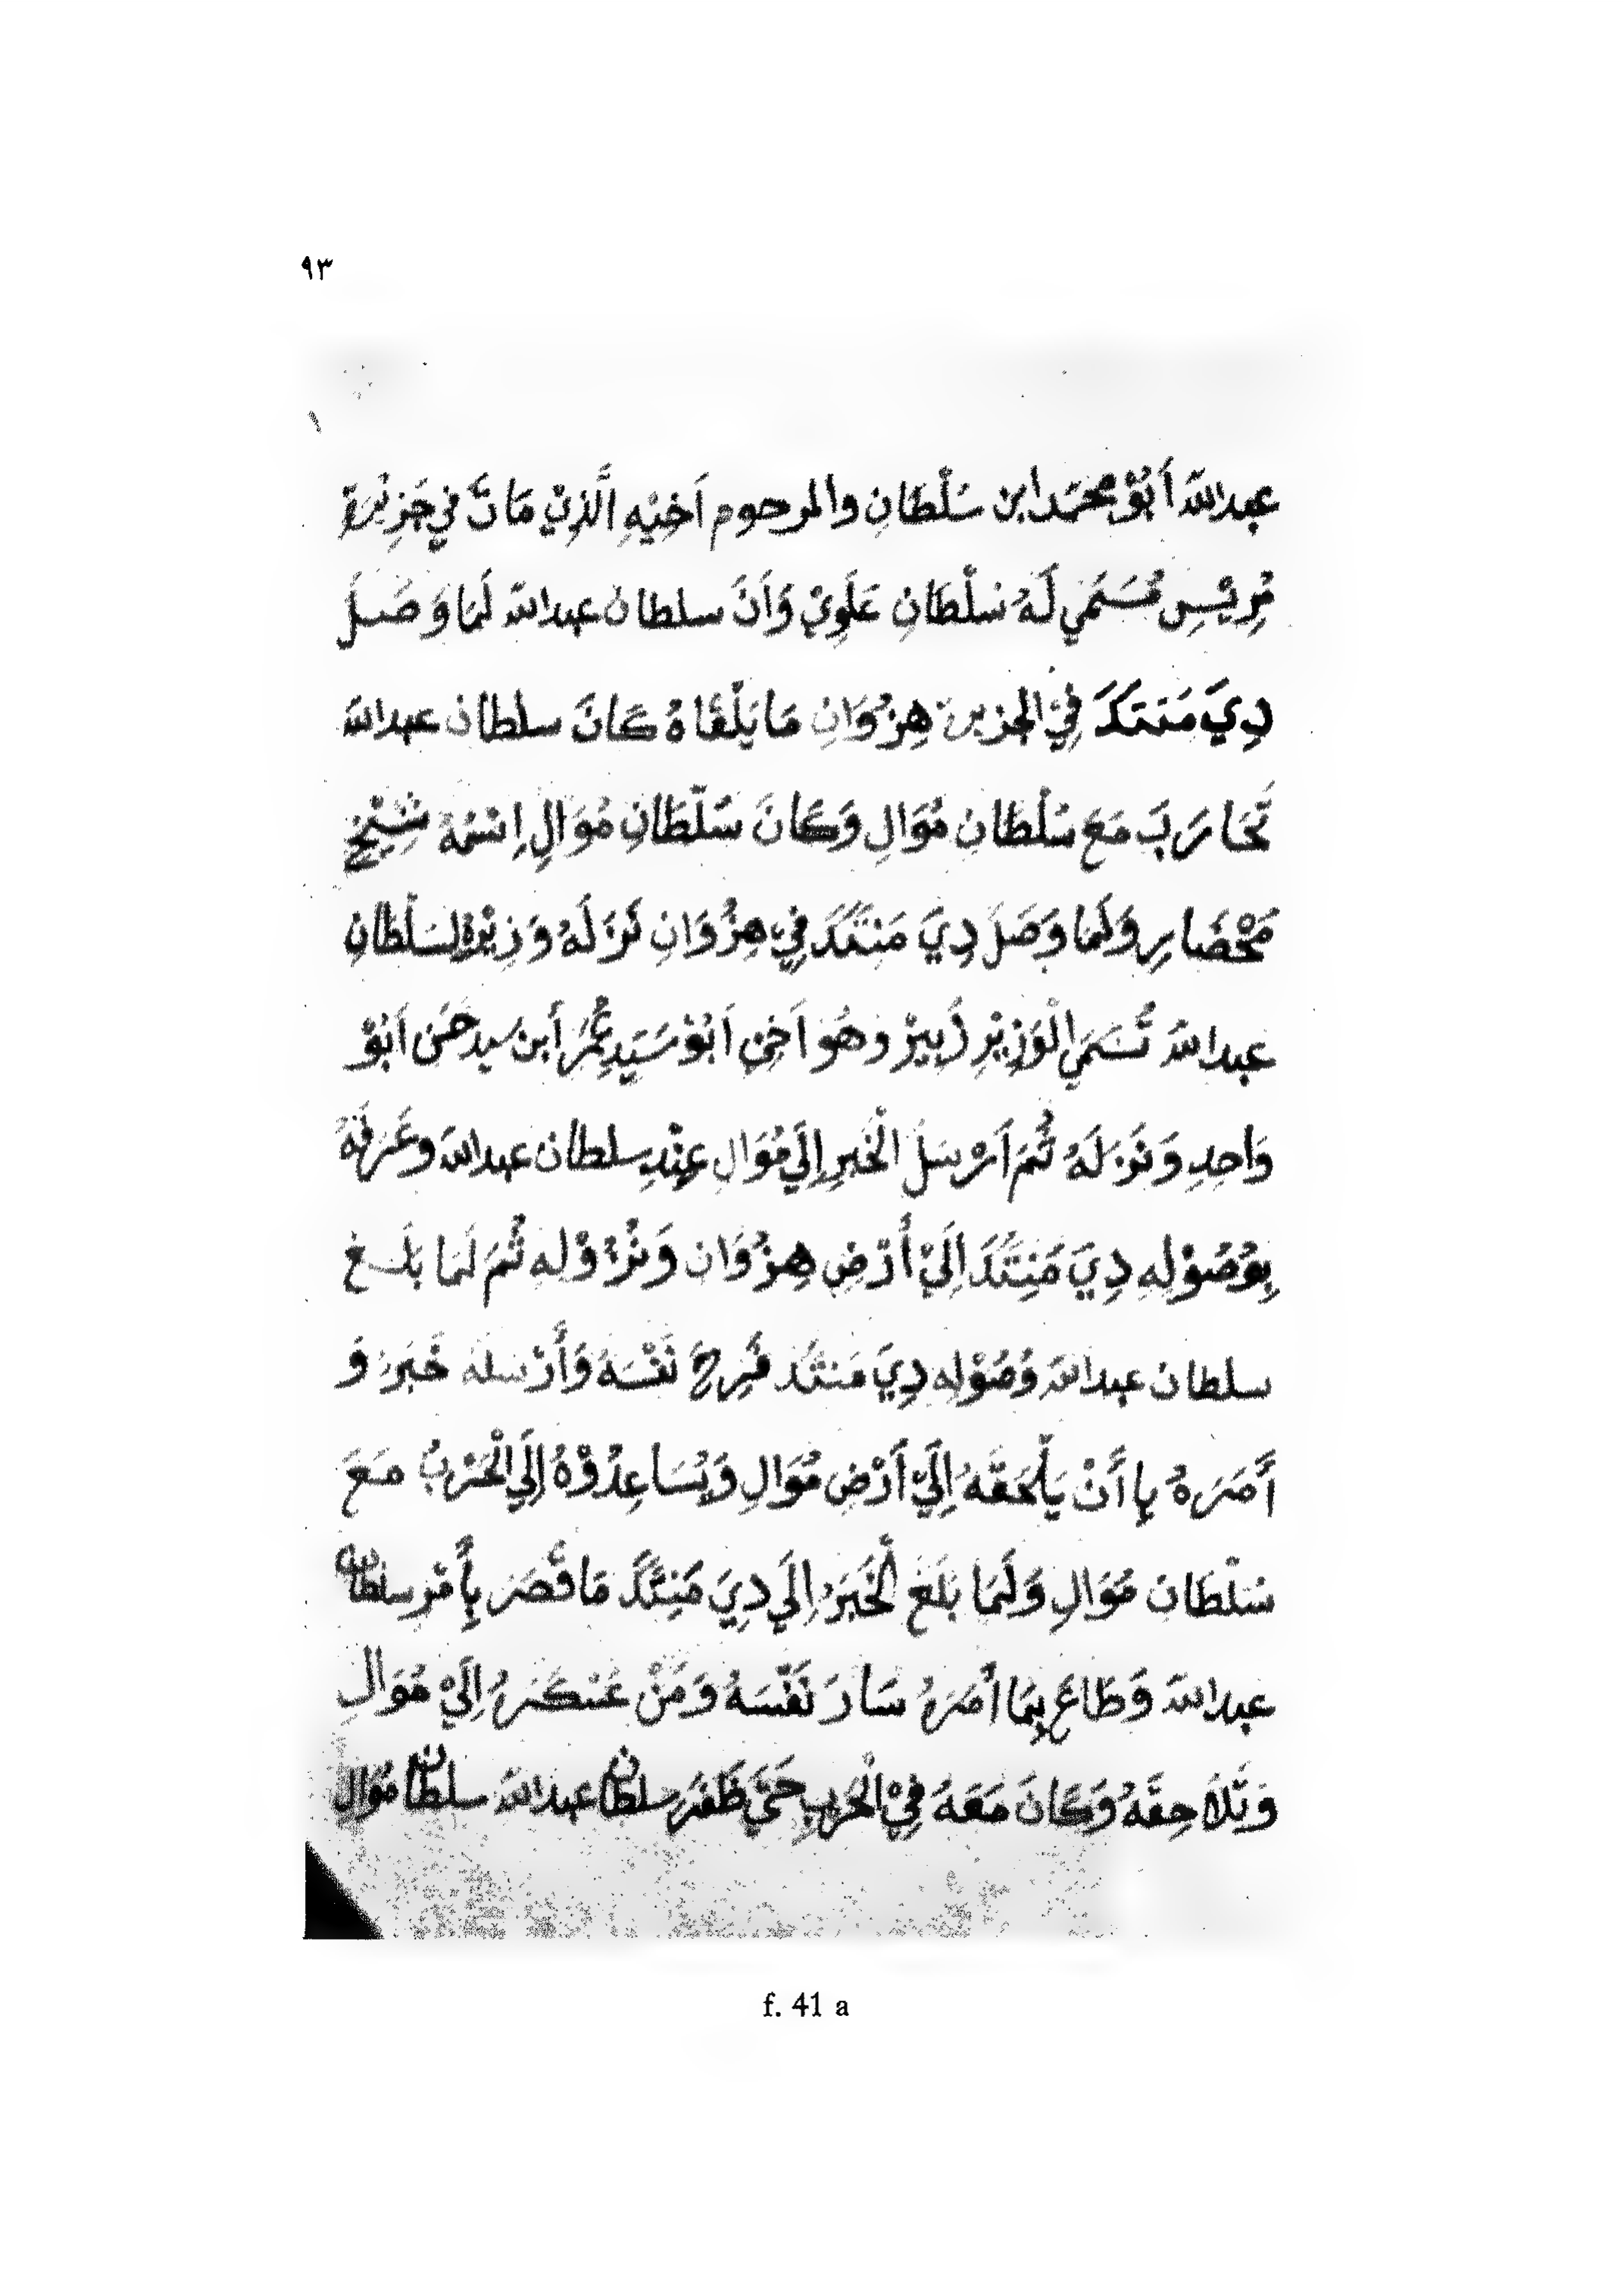 ٩٣
عبد الله أَبُوْ محمَد ابن سُلْطَانِ والمرحوم اَخِيْهِ الَّذِيْ مَاتَ فِي جَزِيْرَةِ
مُرِيْسِ مُسَمَي لَهُ سُلْطَانِ عَلَوِيْ وَاَنَّ سلطان عبد الله لَمَا وَصَلَ
دِيَ مَنتَكَدَ فِيْ الجزيرة هِنزُوَانِ مَا يَلْقَاهُ كَانَ سلطان عبد الله
تَحَارَبَ مَعَ سُلْطَانِ مُوَالِ وَكَانَ سُلْطَانِ مُوَالِ اِسْمُهُ شِيْخِ
مُحْضَارِ وَلَمَا وَصَلَ دِيَ مَنتَكَدَ فِيْ هِنزُوَانِ نَزَلَهُ وَزِيْرُهُ لِسُلْطَانِ
عبد الله تُسَمَي الْوَزِيْرِ زُبِيرْ وَهُوَ اَخِيْ اَبُوْ سَيِّدِ عُمَرُ اَبن سيد حَسَن اَبُوْ
وَاحِدِ وَنَزَلَهُ ثُمَ اَرْسَلَ الْخَبَرِ إِلَي مُوَالِ عِنْدِ سلطان عبد الله وعَرَفَهُ
بِوُصُوْلِهِ دِيَ مَنِتَكَدَ اِلَيْ أَرْضِ هِنزُوَانِ وَنُزُوْلِهِ ثُمَ لَمَا بَلَغ
سلطان عبد الله وُصُوْلِهِ دِيَ مَنتَكَد فَرِحَ نَفْسَهُ وَأَرْسَلَهُ خَبَرَ وَ
أَمَرَهُ بِأَنْ يَلْحَقَهُ إِلَيْ أَرْضِ مُوَالِ وَيُسَاعِدُوْهُ إِلَي الْحَرْبُ مَعَ
سُلْطَان مُوَالِ وَلَمَا بَلَغَ الْخَبَرُ إِلَي دِيَ مَنِتَكَدَ مَا قَصَرَ بِأَمْرِ سلطان
عبد الله وَطَاعَ بِمَا أَمَرَهُ سَارَ نَفْسَهُ وَمَنْ عَسْكَرِهُ اِلَيْ مُوَالِ
وَتَلَاحِقَهُ وَكَانَ مَعَهُ فِيْ الْحَرْبِ حَتَّيَ ظَفَرَ سلطان عبد الله سلطان مُوَال
f. 41 a